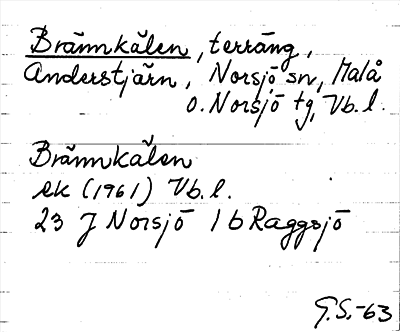 Brännkålen, terräng,
Anderstjärn, Norsjö sn, Malå
o. Norsjö tg, Vb. l.
Brännkålen
ek (1961) Vb. l.
23 J Norsjö 1 b Raggsjö
G.S.-63